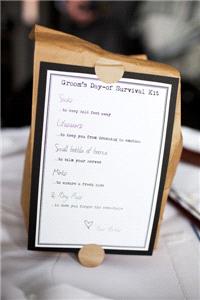 Groom's Day-of Survival Kit
Socks
...to keep cold feet away
Lifesavers
...to keep you from drowning in emotion
Small bottle of booze
...to calm your nerves
Mints
...to ensure a fresh kiss
...in case you forget the